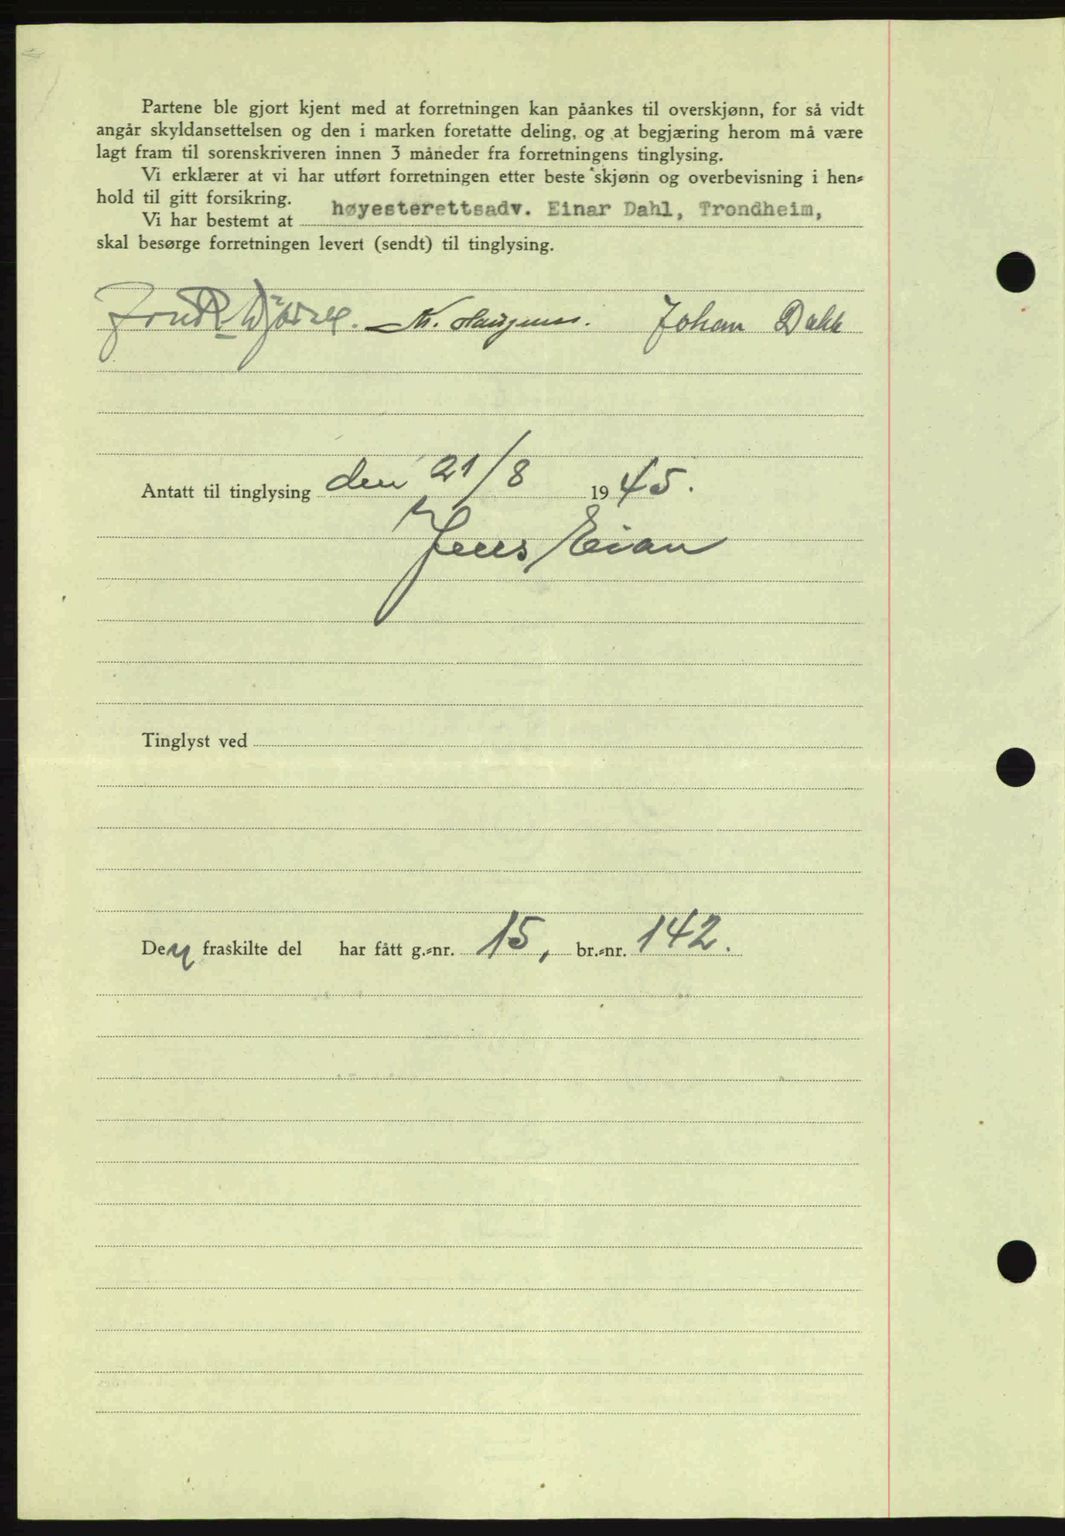 Partene ble gjort kjent med at forretningen kan påankes til overskjønn, for så vidt
angår skyldansettelsen og den i marken foretatte deling, og at begjæring herom må være
lagt fram til sorenskriveren innen 3 måneder fra forretningens tinglysing.
Vi erklærer at vi har utført forretningen etter beste skjønn og overbevisning i hen-
hold til gitt forsikring.
Vi har bestemt at høyesterettsadv. Einar Dahl, Trondheim,
skal besørge forretningen levert (sendt) til tinglysing.
Johan Dahl
Antatt til tinglysing den 21/8 1945.
Jens Eian
Tinglyst ved
Den fraskilte del har fått g.-nr. 15, br.-nr. 142.